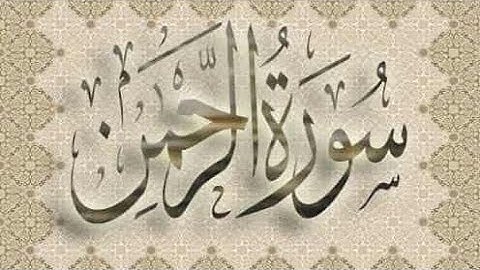 سُورَةُ الرَّحْمَٰنِ